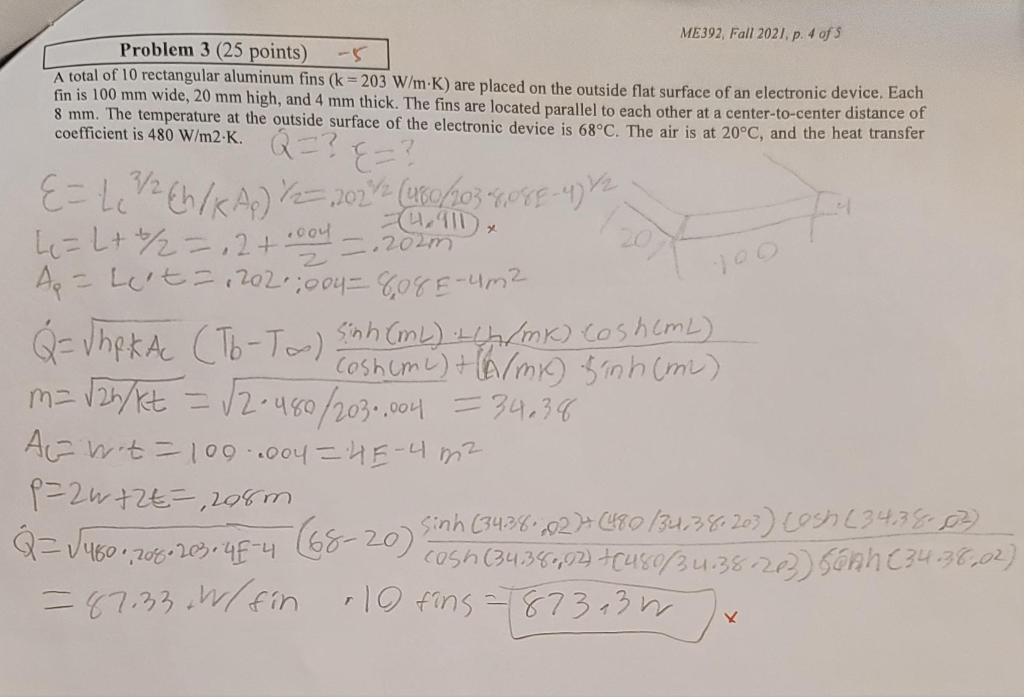 ME392, Fall 2021, p. 4 of 5
Problem 3 (25 points) -5
A total of 10 rectangular aluminum fins (k = 203 W/m·K) are placed on the outside flat surface of an electronic device. Each
fin is 100 mm wide, 20 mm high, and 4 mm thick. The fins are located parallel to each other at a center-to-center distance of
8 mm. The temperature at the outside surface of the electronic device is 68°C. The air is at 20°C, and the heat transfer
coefficient is 480 W/m2·K.
Q̇=? ε=?
ε = Lc^3/2 (h/kAp)^1/2 = .202^3/2 (480/203·8.08E-4)^1/2
= 4.911 x
Lc = L + t/2 = .2 + .004/2 = .202m
20 100 4
Ap = Lc·t = .202·.004 = 8.08E-4m²
Q̇ = √hpkAc (Tb-T∞) sinh(mL)+(h/mk) cosh(mL) / cosh(mL)+(h/mk) sinh(mL)
m = √2h/kt = √2·480/203·.004 = 34.38
Ac = w·t = 100·.004 = 4E-4 m²
P = 2w+2t = .208m
Q̇ = √480·.208·203·4E-4 (68-20) sinh(34.38·.02)+(480/34.38·203) cosh(34.38·.02) / cosh(34.38·.02)+(480/34.38·203) sinh(34.38·.02)
= 87.33 W/fin · 10 fins = 873.3W x